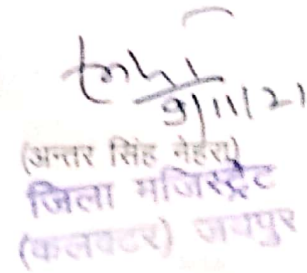 9/11/21
(अन्तर सिंह नेहरा)
जिला मजिस्ट्रेट
(कलक्टर) जयपुर